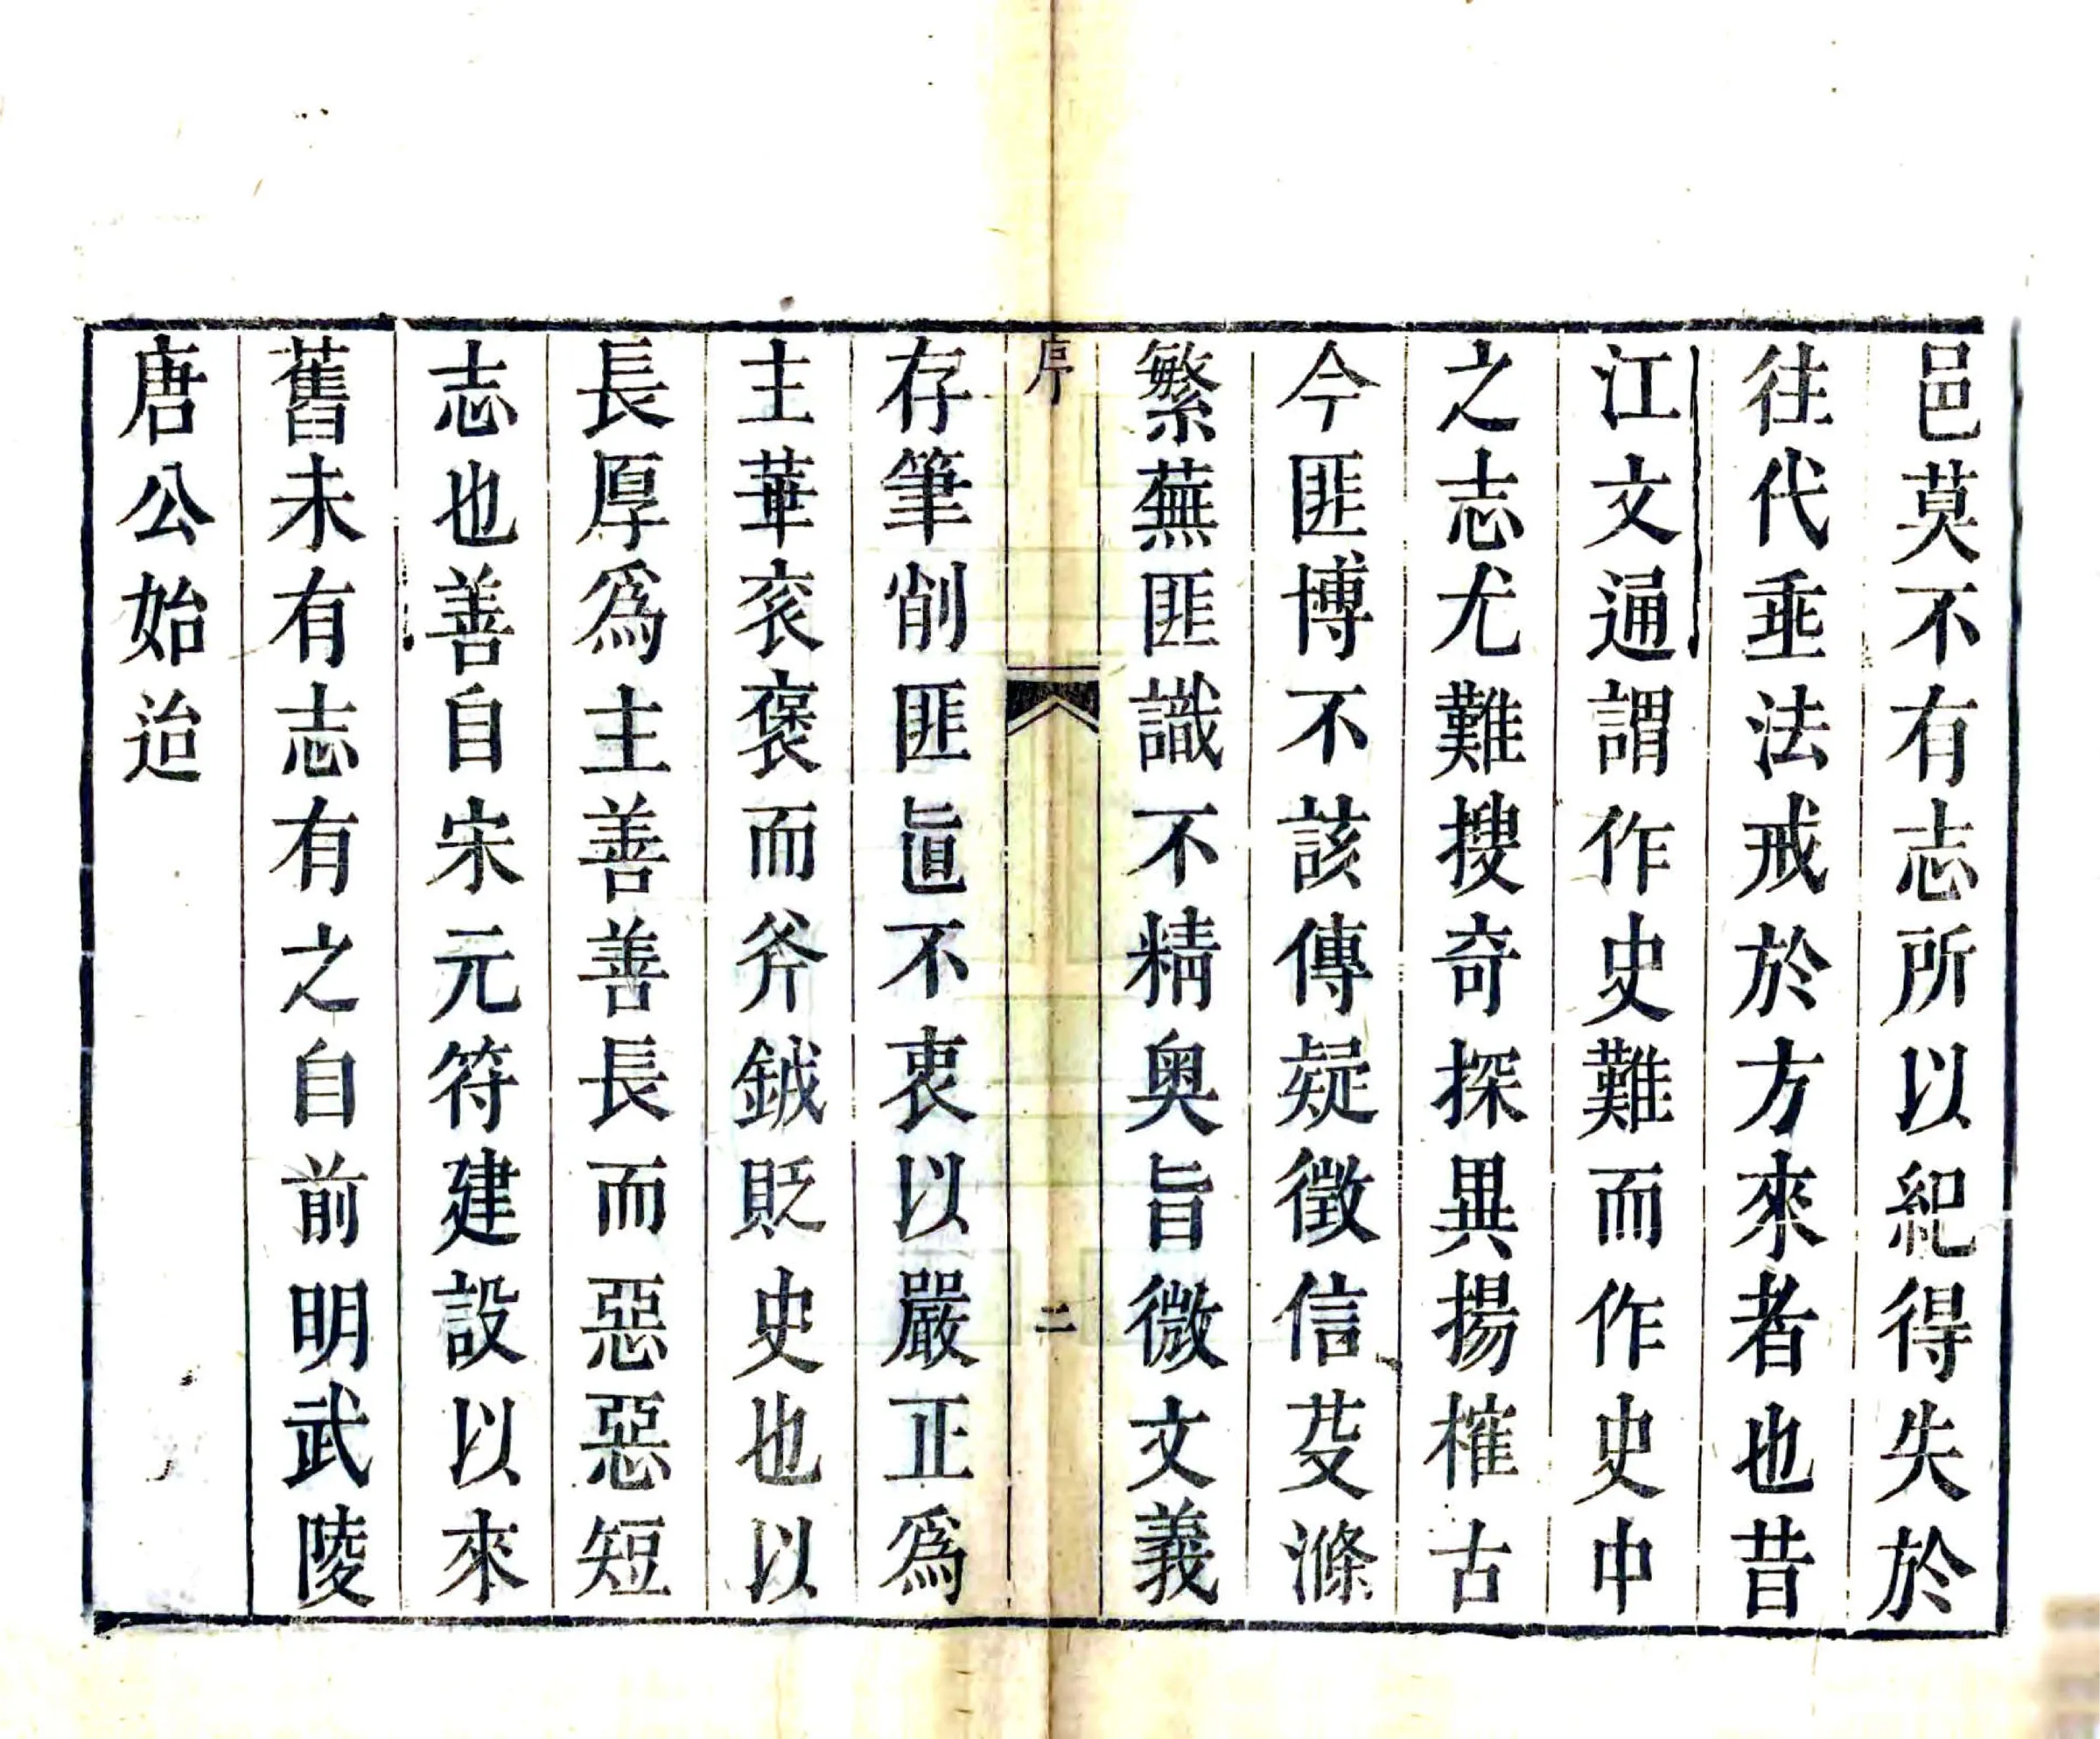 邑莫不有志所以紀得失於
往代垂法戒於方來者也昔
江文通謂作史難而作史中
之志尤難搜奇探異揚榷古
今匪博不該傳疑徵信芟滌
繁蕪匪識不精奥旨微文義
序
二
存筆削匪直不衷以嚴正為
主華衮褒而斧鉞貶史也以
長厚為主善善長而惡惡短
志也善自宋元符建設以來
舊未有志有之自前明武陵
唐公始迨